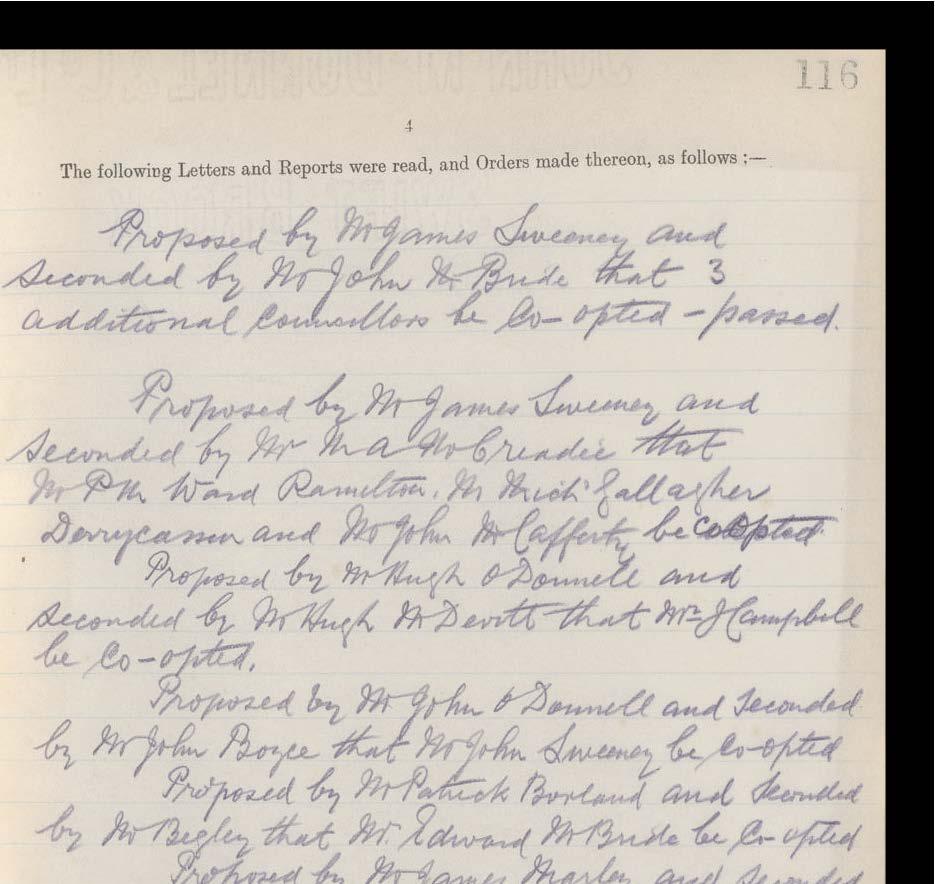 116
4
The following Letters and Reports were read, and Orders made thereon, as follows :—
Proposed by Mr James Sweeney and
seconded by Mr John McBride that 3
additional councillors be Co-opted - passed.
Proposed by Mr James Sweeney and
seconded by Mr M A McCreadie that
Mr P M Ward Ramelton, Mr Gallagher
Derrycassan and Mr John McCafferty be coopted
Proposed by Mr Hugh O'Donnell and
seconded by Mr Hugh McDevitt that J Campbell
be Co-opted.
Proposed by Mr John O'Donnell and seconded
by Mr John Boyce that Mr John Sweeney be Co-opted
Proposed by Mr Patrick Borland and seconded
by Mr Begley that Mr. Edward McBride be Co-opted
Proposed by Mr James and seconded